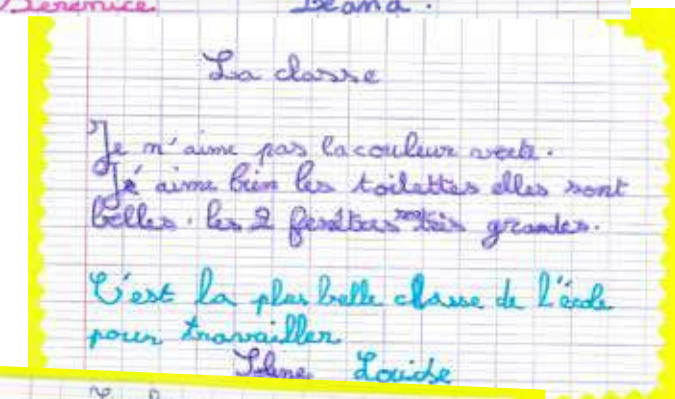 Bérénice Leana.
La classe
Je n'aime pas la couleur verte.
J'aime bien les toilettes elles sont
belles. les 2 fenêtres très grandes.
C'est la plus belle classe de l'école
pour travailler
Louise